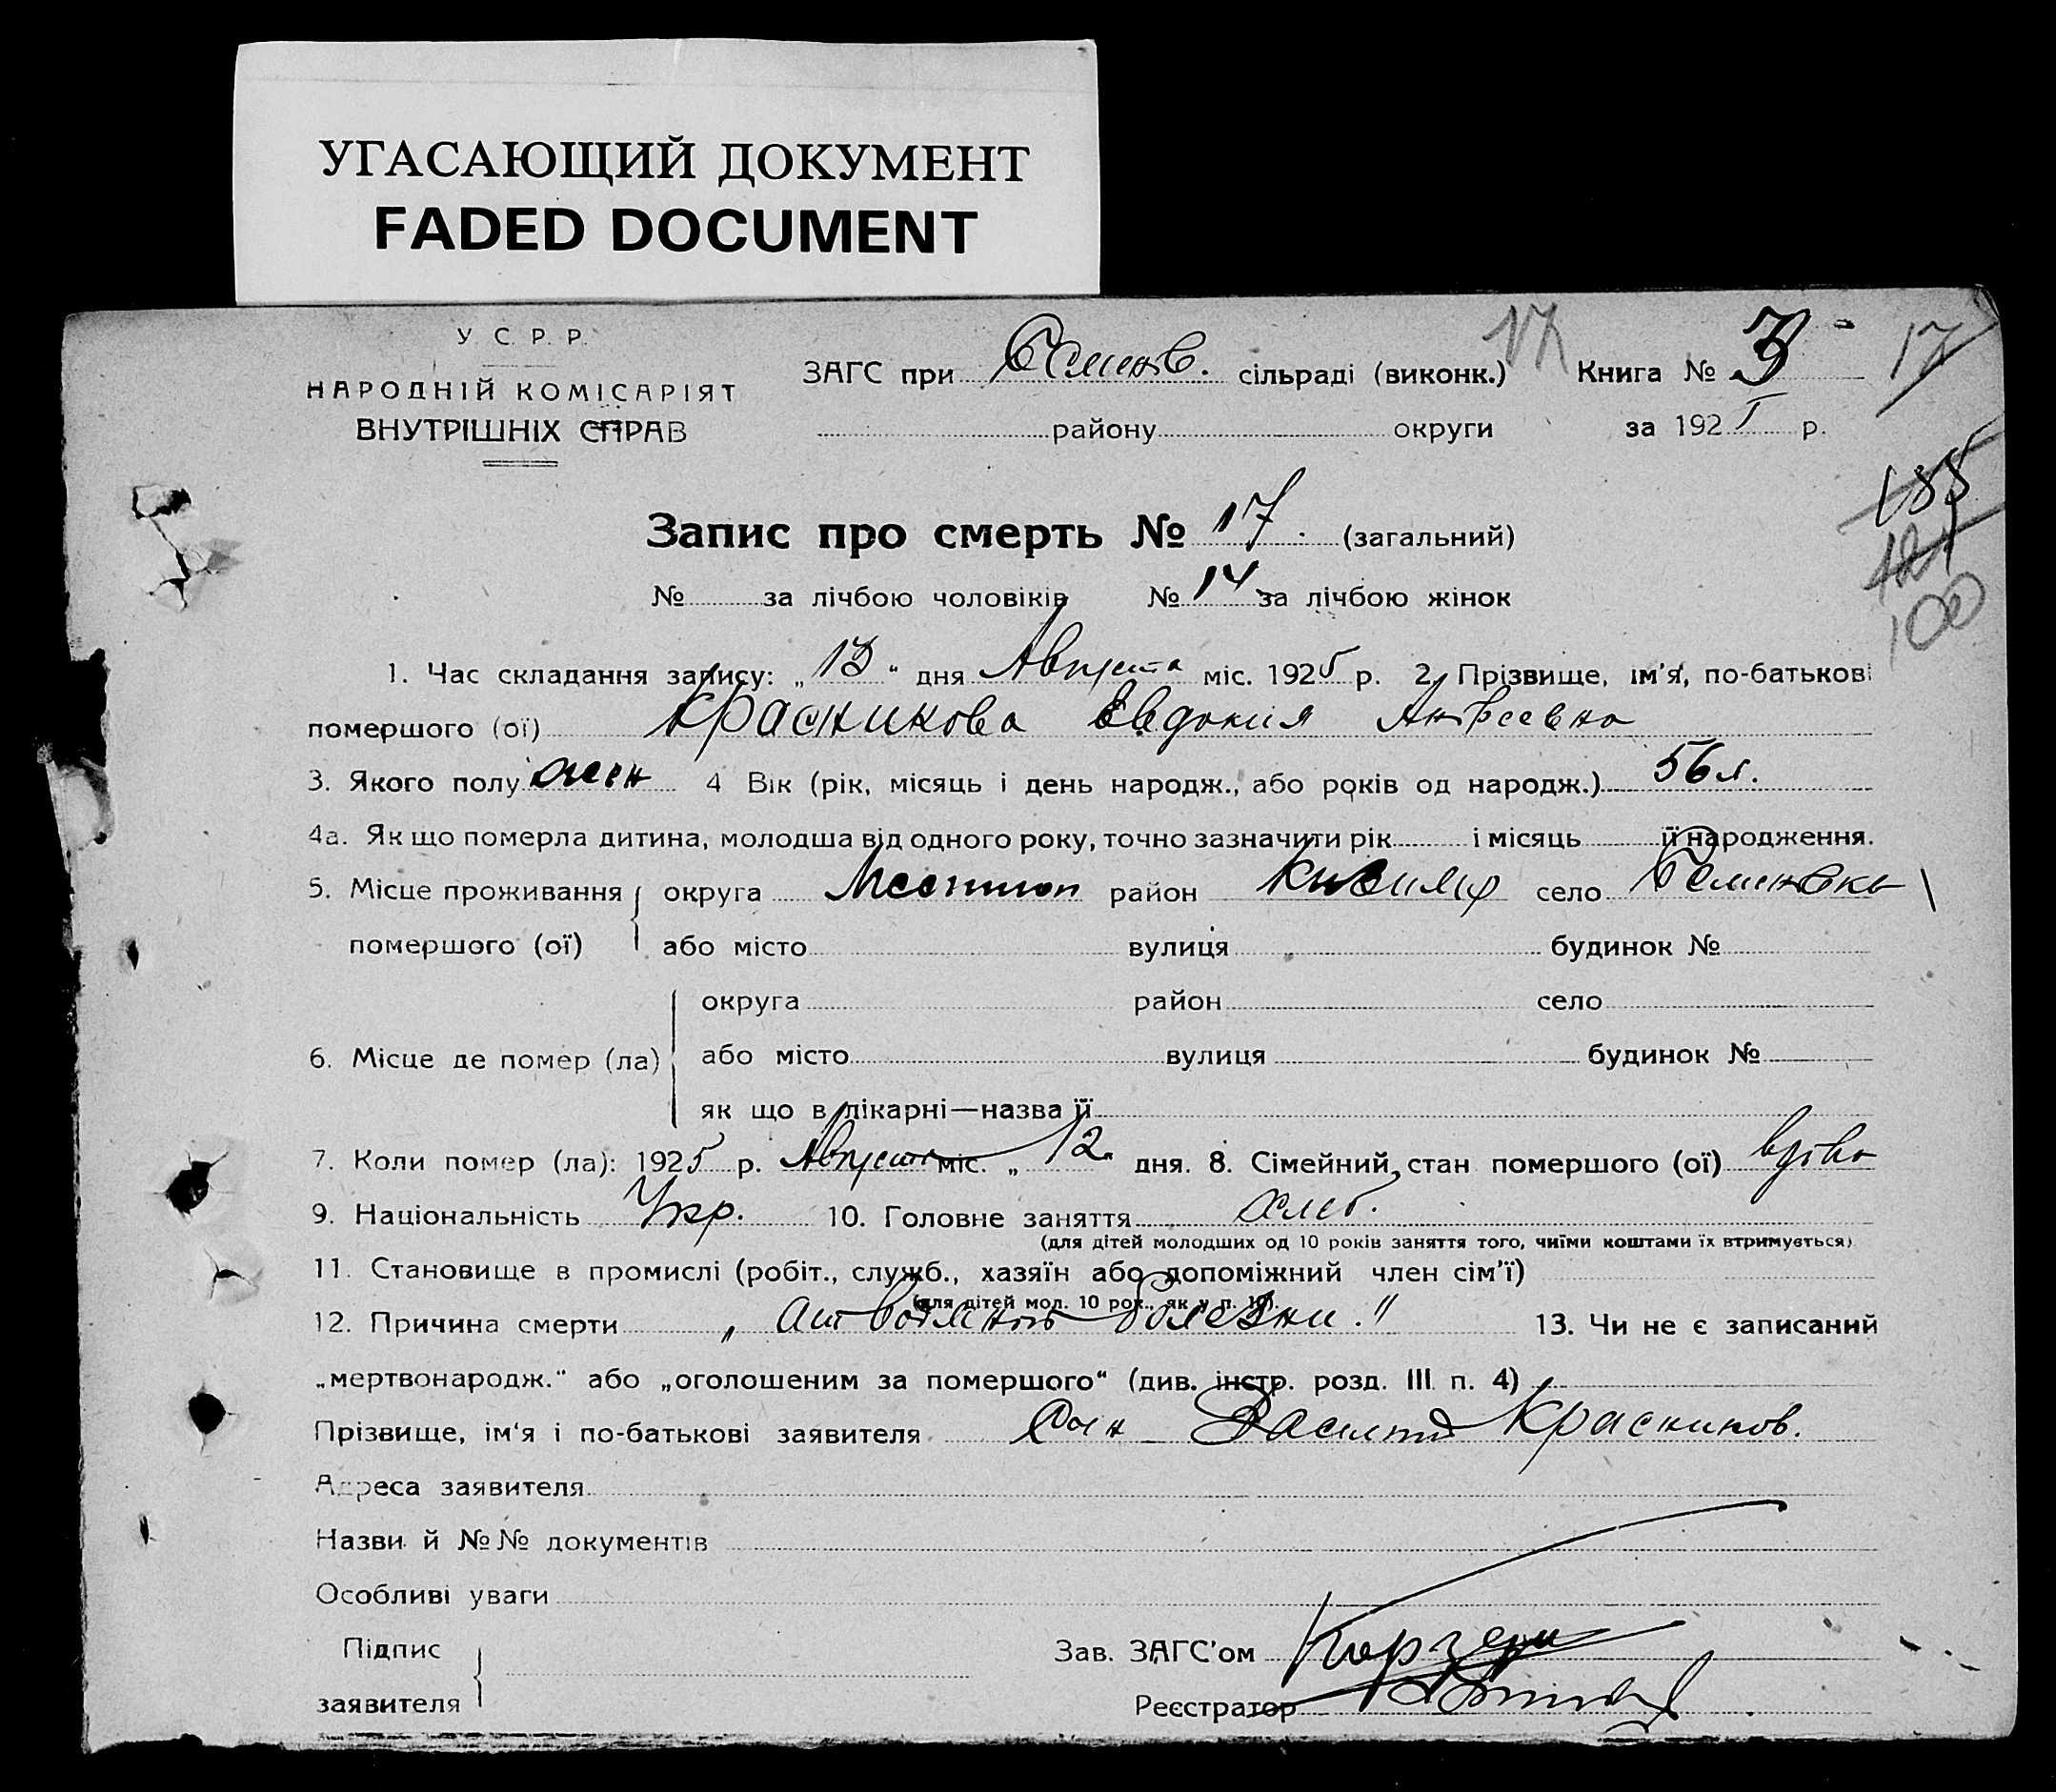 УГАСАЮЩИЙ ДОКУМЕНТ
FADED DOCUMENT
У. С. Р. Р.
НАРОДНІЙ КОМІСАРІЯТ
ВНУТРІШНІХ СПРАВ
17
ЗАГС при сільраді (виконк.) Книга № 3 17
району округи за 192 р.
185
100
Запис про смерть № 17. (загальний)
№ за лічбою чоловіків № 14 за лічбою жінок
1. Час складання запису: „13“ дня Августа міс. 1925 р. 2. Прізвище, ім'я, по-батькові
помершого (ої) Красникова Евдокия Андреевна
3. Якого полу жен 4 Вік (рік, місяць і день народж., або років од народж.) 56 л.
4а. Як що померла дитина, молодша від одного року, точно зазначити рік і місяць її народження.
5. Місце проживання округа район село
помершого (ої) або місто вулиця будинок №
округа район село
6. Місце де помер (ла) або місто вулиця будинок №
як що в лікарні—назва її
7. Коли помер (ла): 1925 р. Августа міс. „12 дня. 8. Сімейний стан помершого (ої) вдова
9. Національність Укр. 10. Головне заняття хлеб.
(для дітей молодших од 10 років заняття того, чиїми коштами їх втримується)
11. Становище в промислі (робіт., служб., хазяїн або допоміжний член сім'ї)
(для дітей мол. 10 рок., як у п. 10).
12. Причина смерти „ от болезни." 13. Чи не є записаний
„мертвонародж.“ або „оголошеним за помершого“ (див. інстр. розд. III п. 4)
Прізвище, ім'я і по-батькові заявителя Сын Василий Красников.
Адреса заявителя
Назви й №№ документів
Особливі уваги
Підпис
заявителя
Зав. ЗАГС'ом
Реєстратор